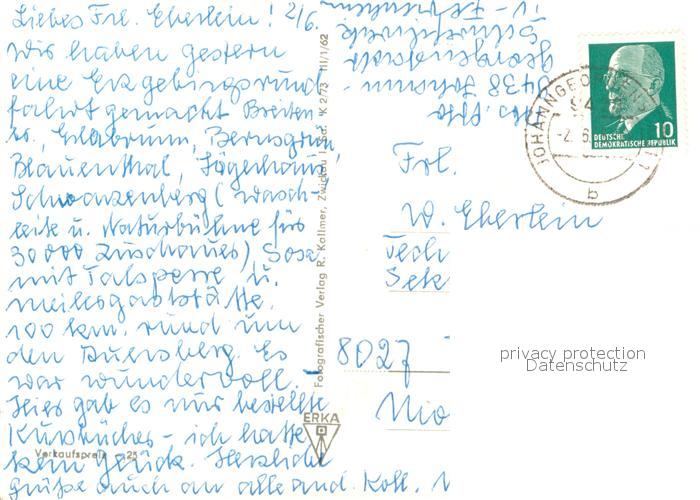 Liebes Frl. Eberlein! 2/6.
Wir haben gestern
eine Erzgebirgsrund
fahrt gemacht Breiten
Erlabrunn, Bermsgrün,
Blauenthal, Jägerhaus,
Schwarzenberg (Wasch-
leite u. Naturbühne für
30 000 Zuschauer) Sosa
mit Talsperre u.
100 km. rund um
den Auersberg. Es
war wundervoll.
Hier gab es nur bestellte
ich hatte
kein Glück. Herzliche
Grüße auch an alle and. Koll.
Georgenstadt
9438 Johann-
Frl.
W. Eberlein
Tech
Sek
8027
Fotografischer Verlag R. Kallmer, Zwickau i. Sa. K 2/73 III/1/62
ERKA
Verkaufspreis -,25
JOHANNGEORGENSTADT
94
-2.6.
b
10
DEUTSCHE
DEMOKRATISCHE REPUBLIK
privacy protection
Datenschutz